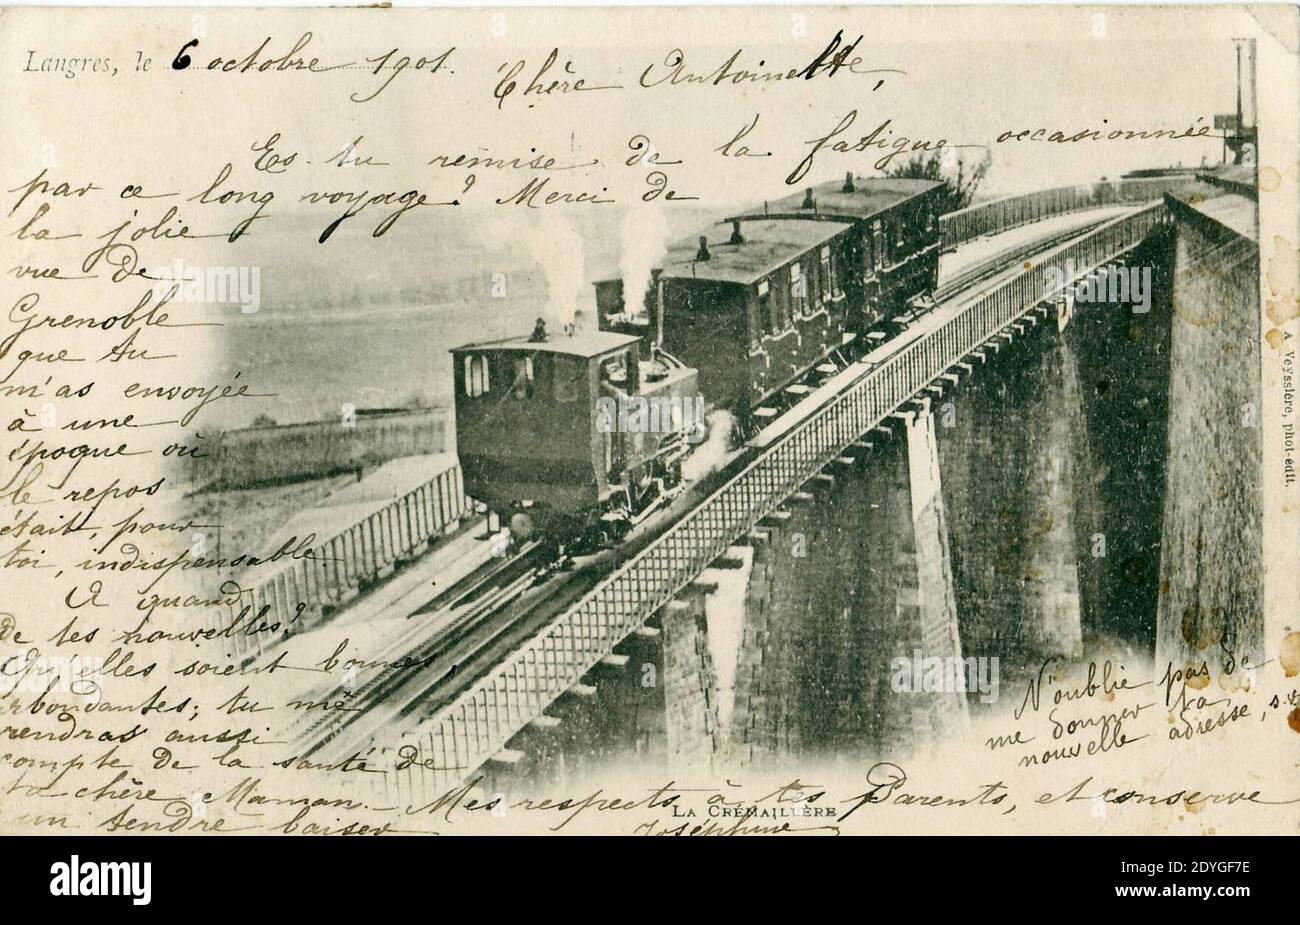 Langres, le 6 octobre 1901.
Chère Antoinette,
Es-tu remise de la fatigue occasionnée
par ce long voyage? Merci de
la jolie
vue de
Grenoble
que tu
m'as envoyée
à une
époque où
le repos
était, pour
toi, indispensable.
A quand
de tes nouvelles?
Qu'elles soient bonnes,
abondantes; tu me
rendras aussi
compte de la santé de
ta chère Maman. Mes respects à tes Parents, et conserve
un tendre baiser
Joséphine
N'oublie pas de
me donner ta
nouvelle adresse, s.v.
LA CRÉMAILLÈRE
A Veysslère, phot-édit.
alamy
Image ID: 2DYGF7E
www.alamy.com